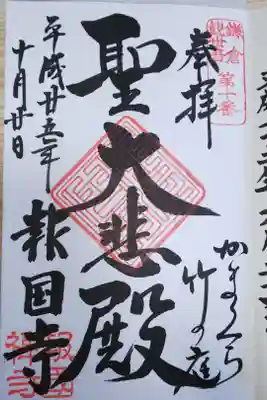 鎌倉
観世音
第十番
奉拝
かまくら
竹の庭
聖大悲殿
報国寺
平成廿五年
十月廿日
報国
禅寺